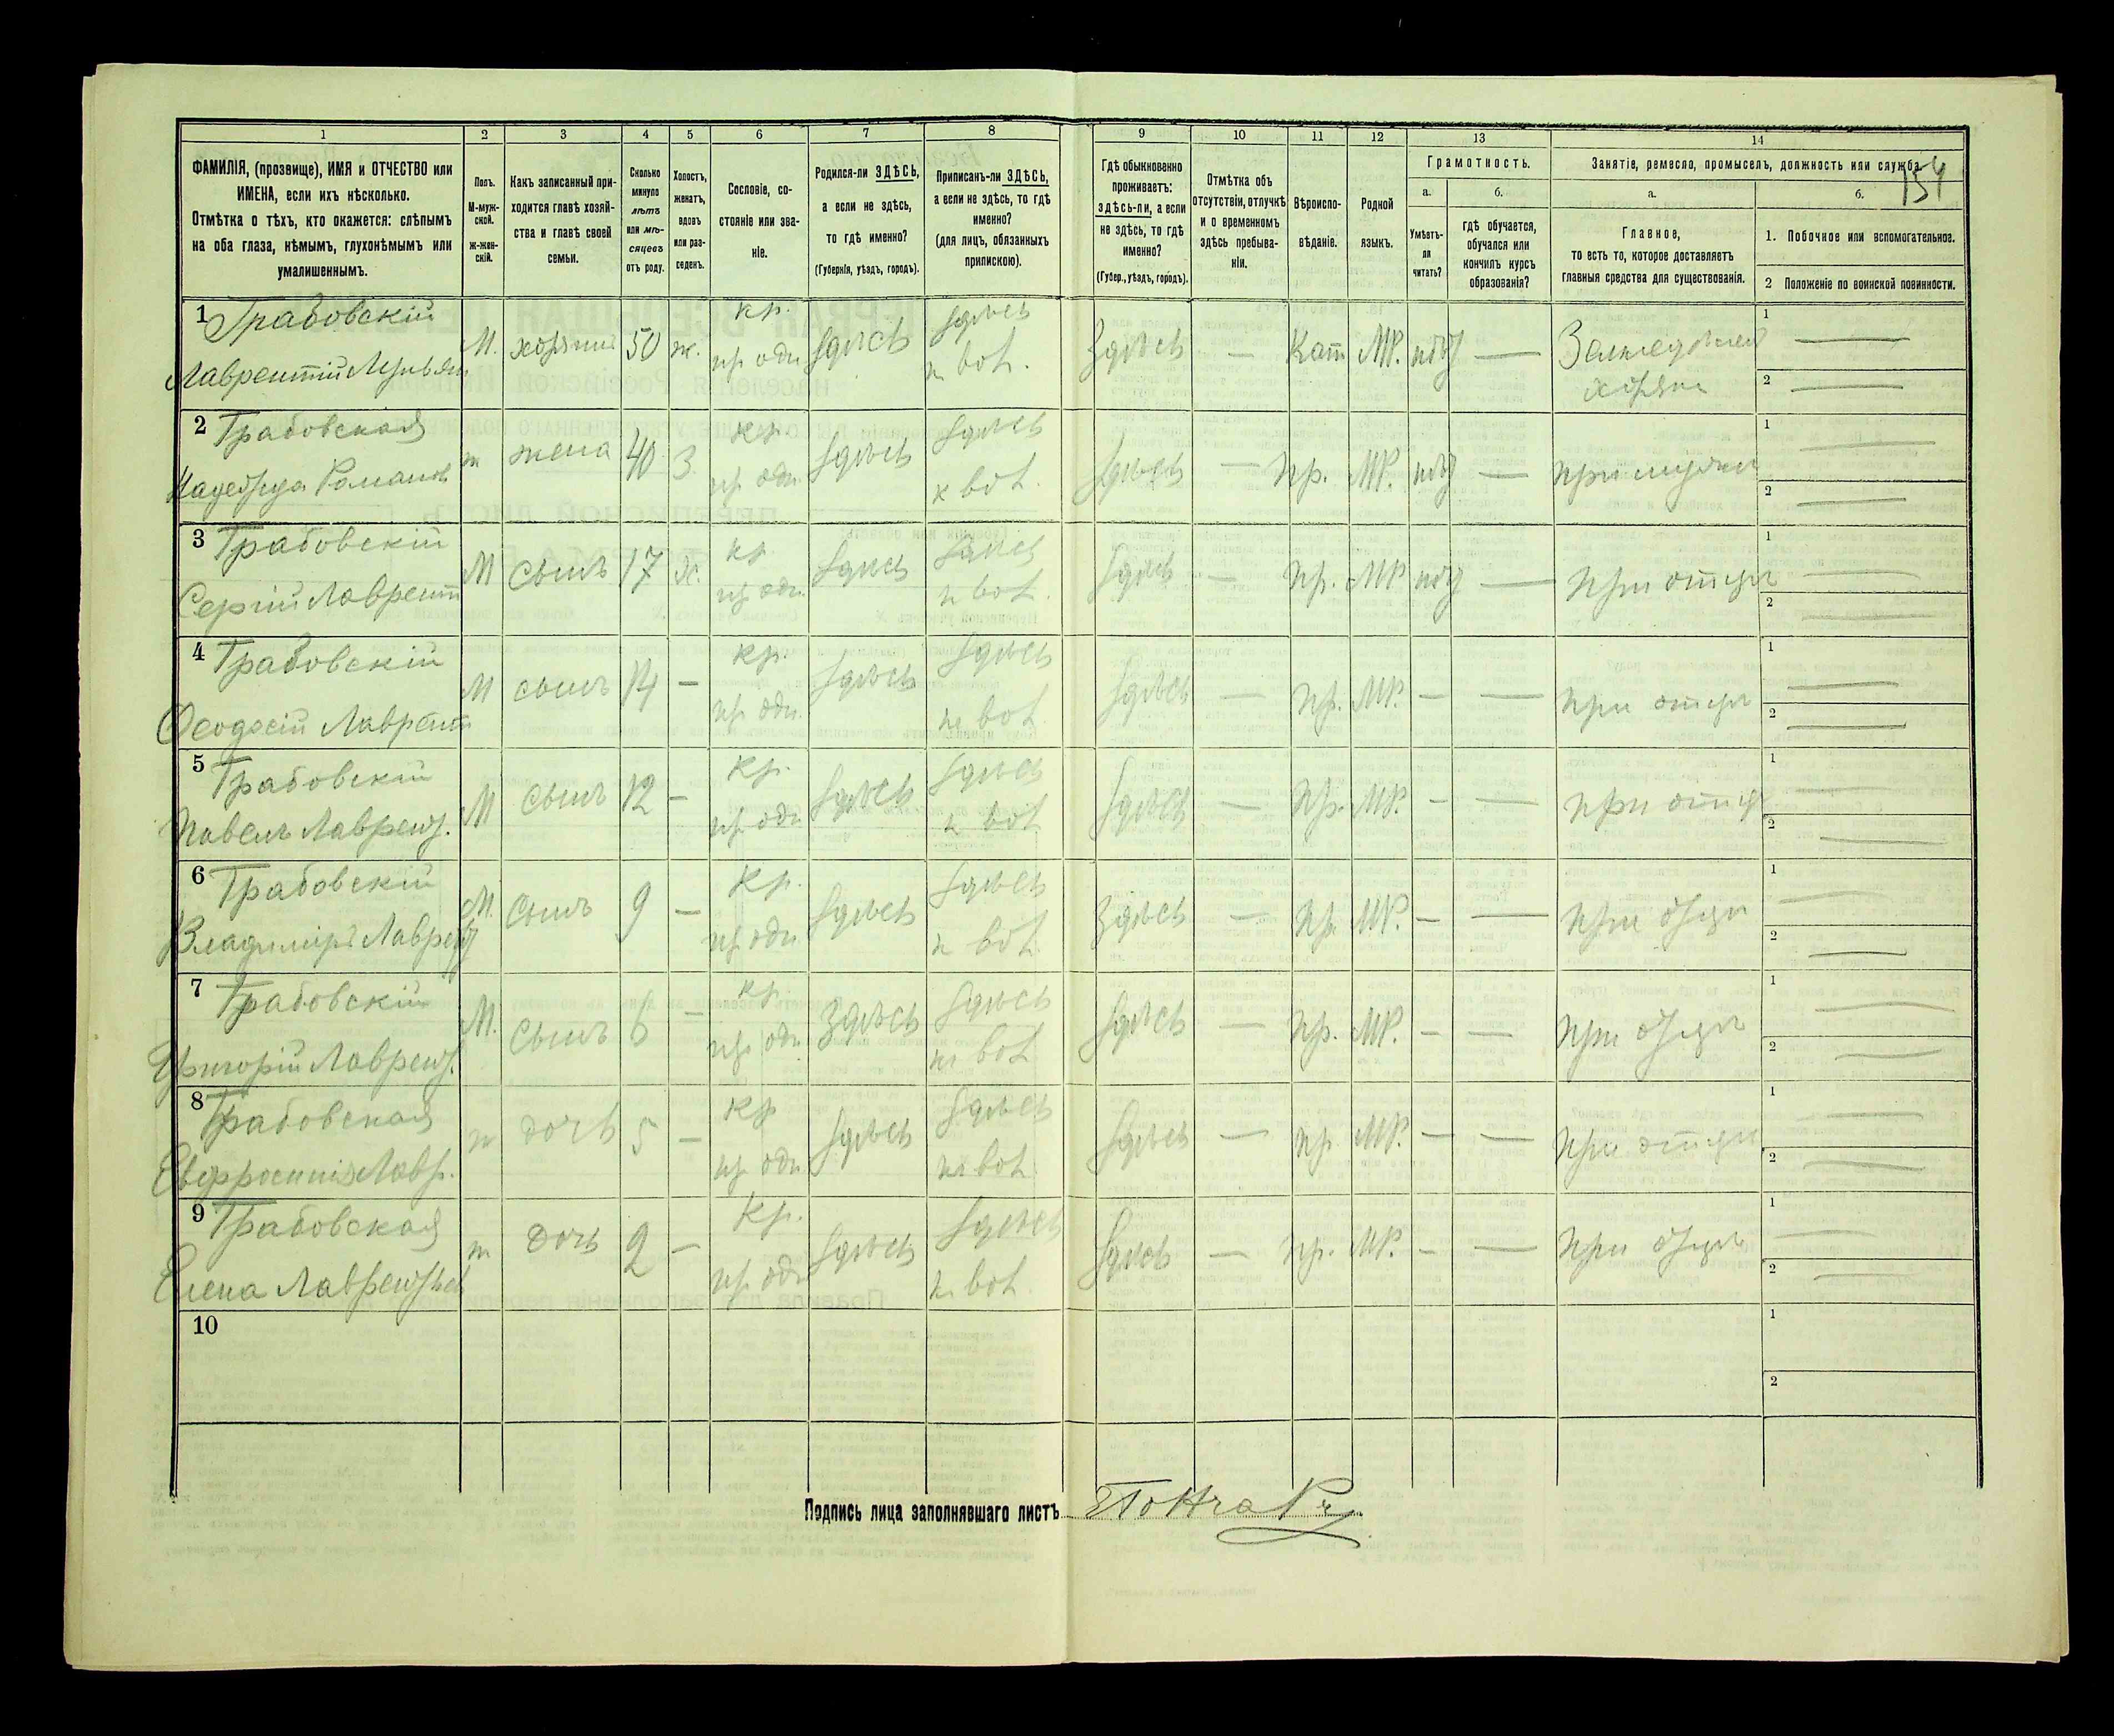 1 2 3 4 5 6 7 8 9 10 11 12 13 14
ФАМИЛІЯ, (прозвище), ИМЯ и ОТЧЕСТВО или
ИМЕНА, если ихъ нѣсколько.
Отмѣтка о тѣхъ, кто окажется: слѣпымъ
на оба глаза, нѣмымъ, глухонѣмымъ или
умалишеннымъ.
Полъ.
М-муж-
ской.
Ж-жен-
скій.
Какъ записанный при-
ходится главѣ хозяй-
ства и главѣ своей
семьи.
Сколько
минуло
лѣтъ
или мѣ-
сяцевъ
отъ роду.
Холостъ,
женатъ,
вдовъ
или раз-
веденъ.
Сословіе, со-
стояніе или зва-
ніе.
Родился-ли ЗДѢСЬ,
а если не здѣсь,
то гдѣ именно?
(Губернія, уѣздъ, городъ).
Приписанъ-ли ЗДѢСЬ,
а если не здѣсь, то гдѣ
именно?
(для лицъ, обязанныхъ
припискою).
Гдѣ обыкновенно
проживаетъ:
здѣсь-ли, а если
не здѣсь, то гдѣ
именно?
(Губер., уѣздъ, городъ).
Отмѣтка объ
отсутствіи, отлучкѣ
и о временномъ
здѣсь пребыва-
ніи.
Вѣроиспо-
вѣданіе.
Родной
языкъ.
Грамотность.
а.
Умѣетъ-
ли
читать?
б.
гдѣ обучается,
обучался или
кончилъ курсъ
образованія?
Занятіе, ремесло, промыселъ, должность или служба.
154
а.
Главное,
то есть то, которое доставляетъ
главныя средства для существованія.
б.
1. Побочное или вспомогательное.
2 Положеніе по воинской повинности.
1 Грабовскій
Лаврентій
М. хозяинъ 50 ж. кр. здѣсь здѣсь Здѣсь — Кат МР. — 1 —
2 —
2 Грабовская
Надежда Роман
ж жена 40 З кр. здѣсь здѣсь здѣсь — пр. МР. — 1 —
2 —
3 Грабовскій
Сергій Лаврент
М сынъ 17 Х. кр здѣсь здѣсь здѣсь — пр. МР — при отцѣ 1 —
2 —
4 Грабовскій
Ѳеодосій Лаврент
М сынъ 14 — кр. здѣсь здѣсь здѣсь — пр. МР. — — при отцѣ 1 —
2 —
5 Грабовскій
Павелъ Лаврент.
М сынъ 12 — кр. здѣсь здѣсь здѣсь — пр. МР. — — при отцѣ 1 —
2 —
6 Грабовскій
Владиміръ Лаврент
М. сынъ 9 — кр. здѣсь здѣсь Здѣсь — пр. МР. — — при отцѣ 1 —
2 —
7 Грабовскій
Григорій Лаврент.
М. сынъ 6 — кр. Здѣсь здѣсь здѣсь — пр. МР. — — при отцѣ 1 —
2 —
8 Грабовская
Евфросинія Лавр.
ж дочь 5 — кр здѣсь здѣсь здѣсь — пр МР. — — при отцѣ 1 —
2 —
9 Грабовская
Елена Лаврентьев
ж дочь 2 — Кр. здѣсь здѣсь здѣсь — пр. МР. — — при отцѣ 1 —
2 —
10
1
2
Подпись лица заполнявшаго листъ